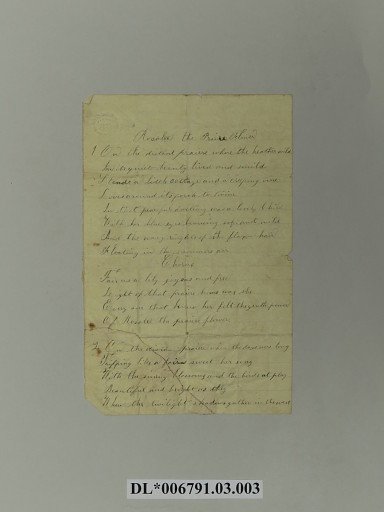 Rosalie the Prairie Flower
1 On the distant prairie where the heather wild
In its quiet beauty lived and smiled
Stands a little cottage and a creeping vine
Loves around its porch to twine
In that peaceful dwelling was a lovely child
With her blue eyes beaming soft and mild
And the wavy ringlets of its flaxen hair
Floating in the summer air
Chorus
Fair as a lily joyous and free
Light of that prairie home was she
Every one that knew her felt the gentle power
Of Rosalie the prairie flower
2 On the prairie when the days were long
Tripping like a fairy sweet her song
With the sunny blossoms and the birds at play
Beautiful and bright as they
When the twilight shadows gather in the west
DL*006791.03.003